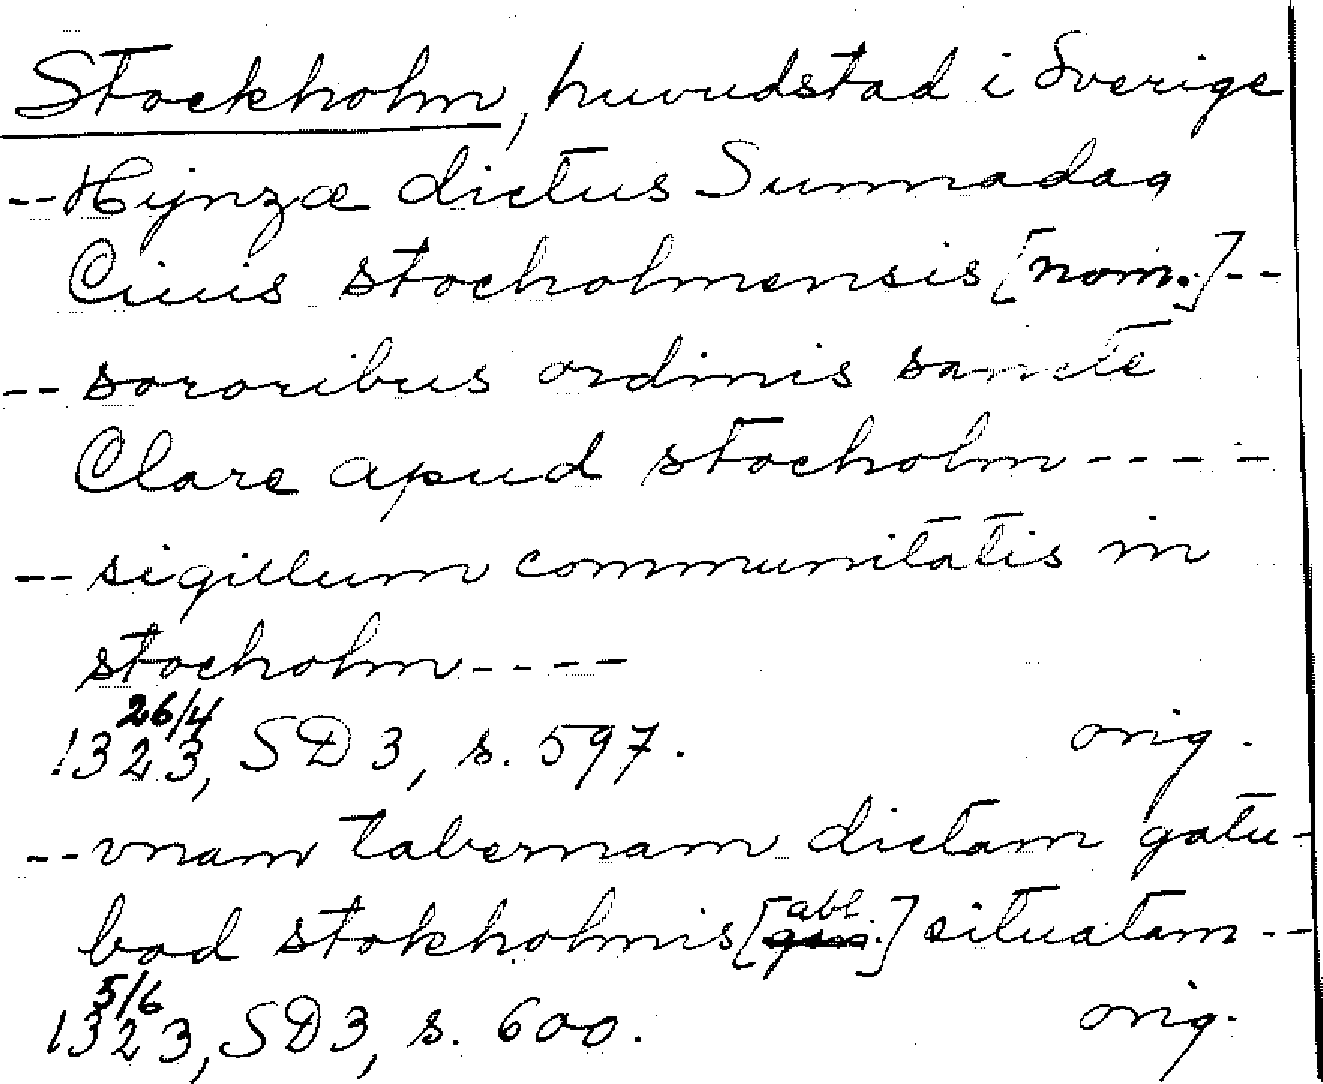 Stockholm, huvudstad i Sverige
-- Hijnzæ dictus Sunnadag
Ciuis stocholmensis [nom.] --
-- sororibus ordinis sancte
Clare apud stocholm ----
-- sigillum communitatis in
stocholm ----
26/4
1323, SD 3, s. 597. orig.
-- vnam tabernam dictam gatu-
bod stokholmis [abl.] situatam --
5/6
1323, SD 3, s. 600. orig.